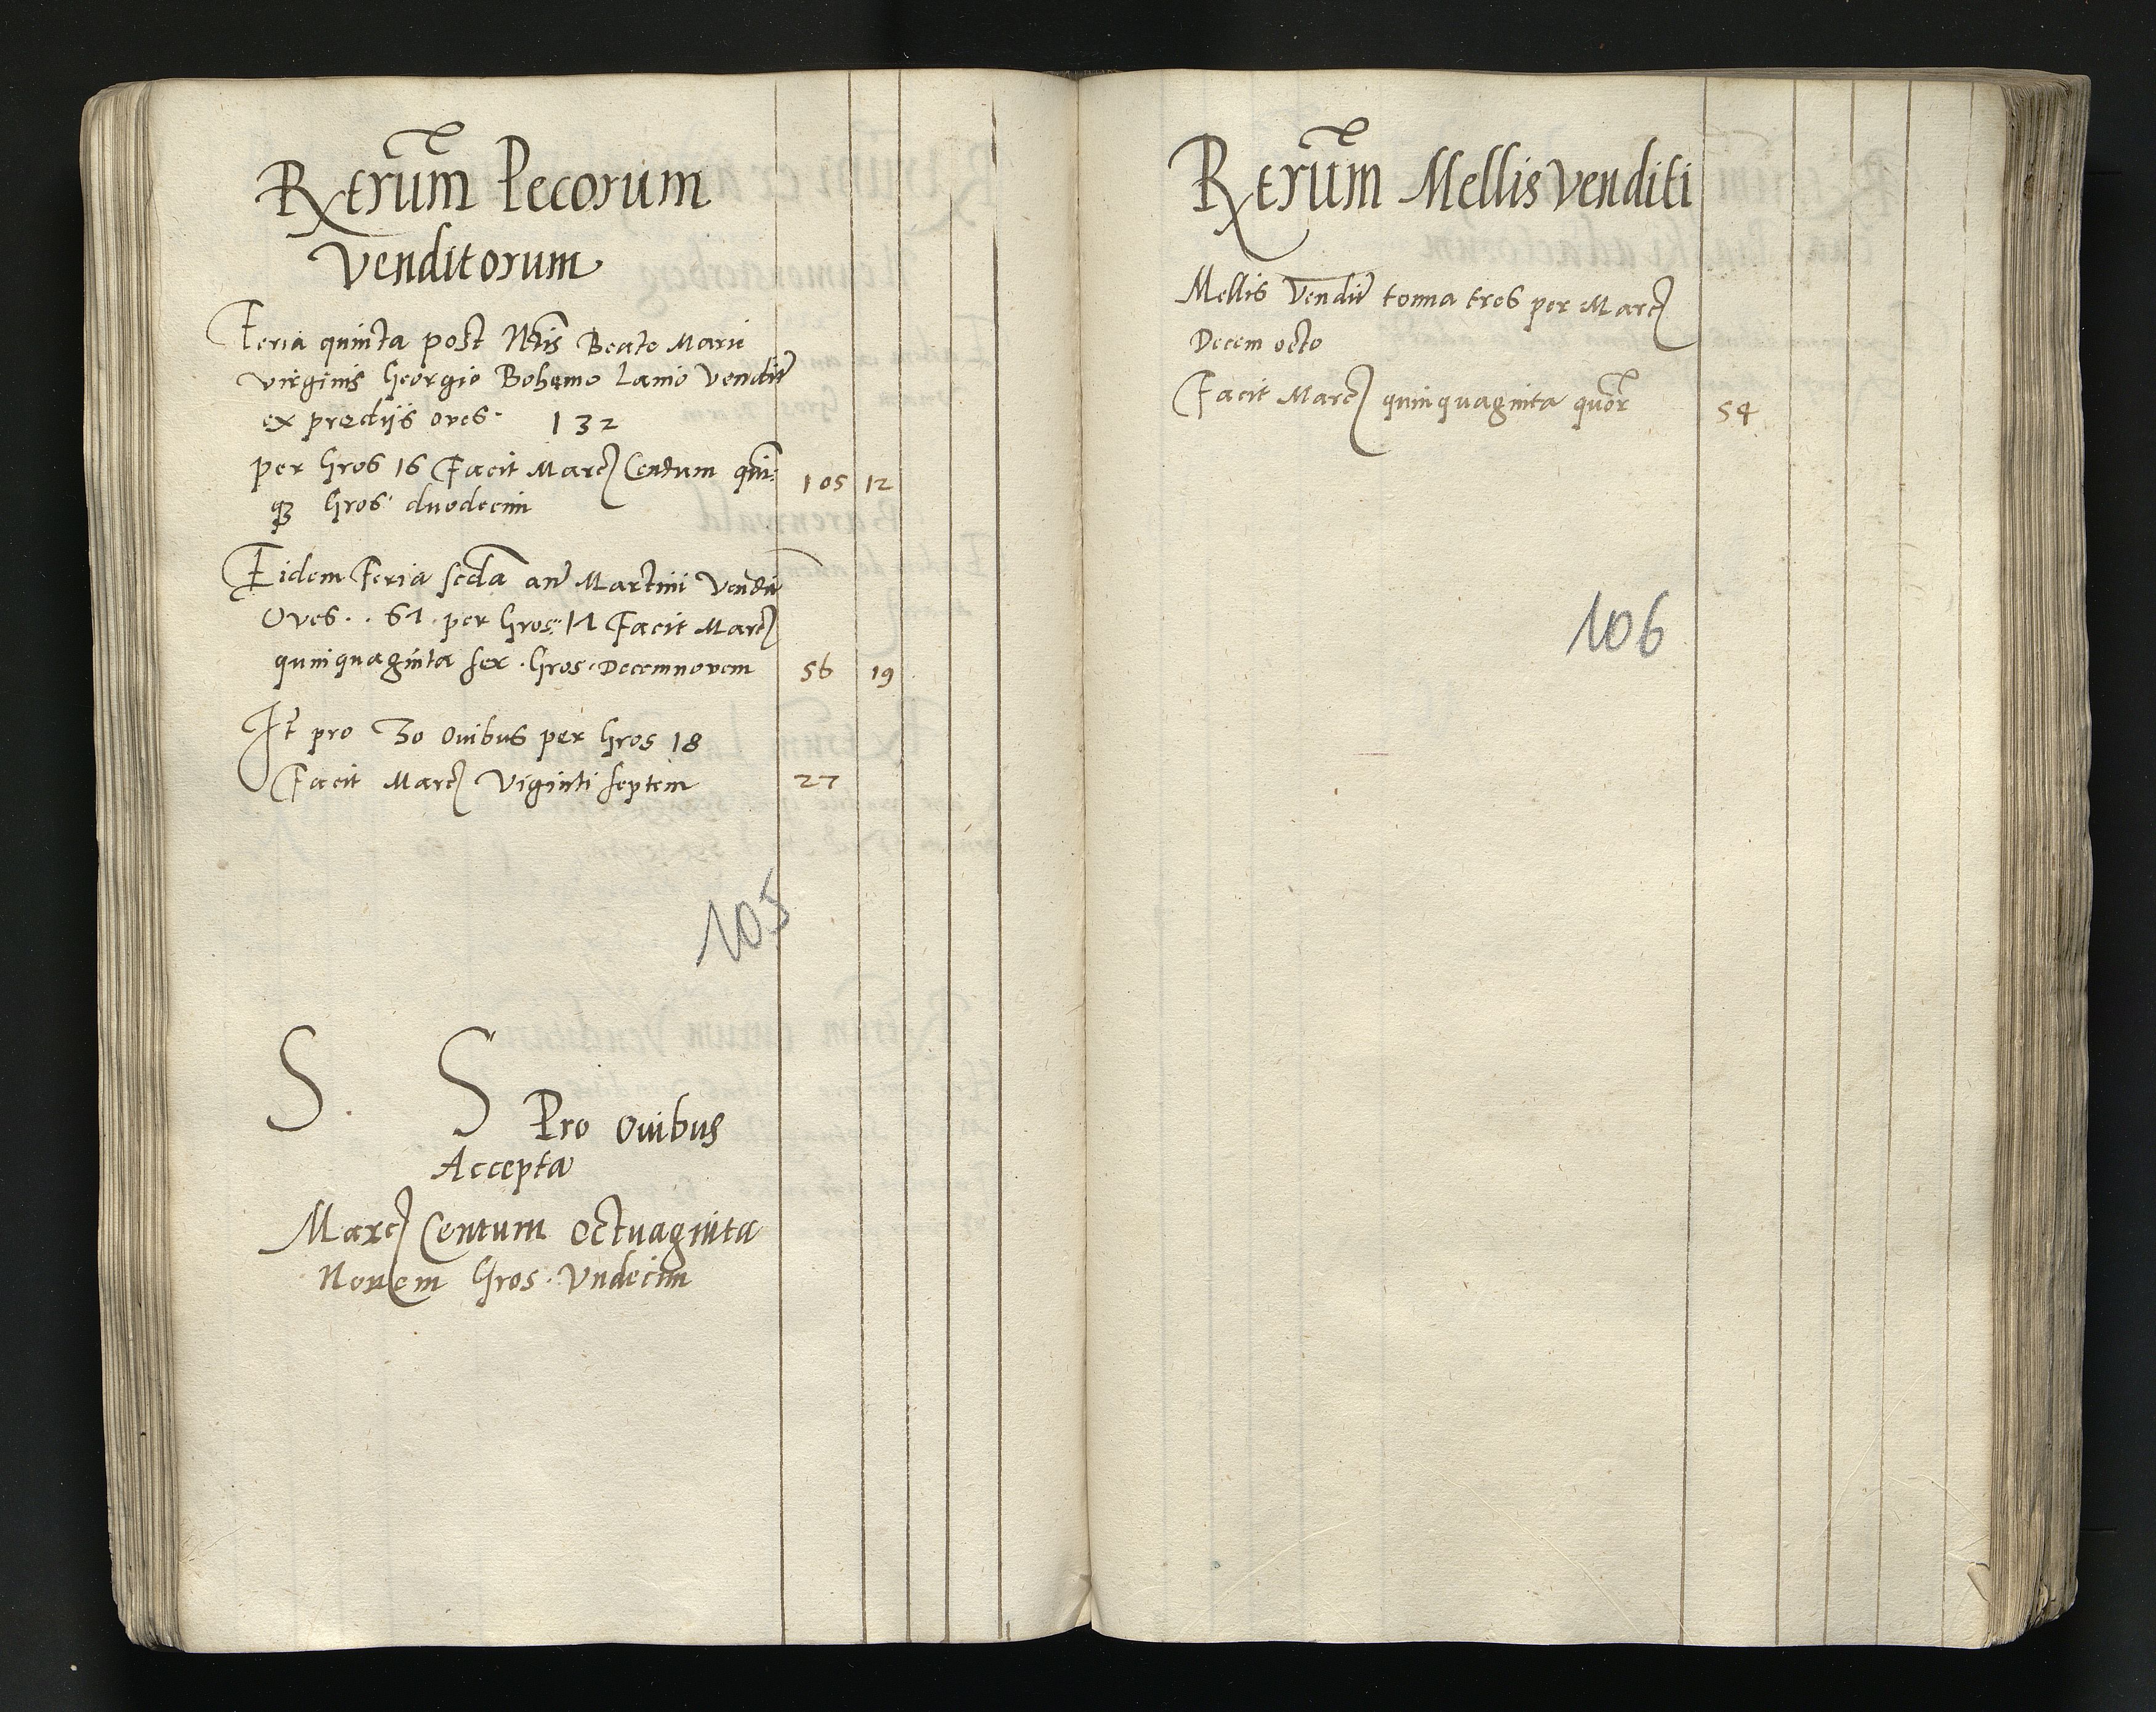 Retrum Pecorum
Venditorum
Feria quinta post Ntis Beate Marie
virginis Georgio Bohemo Lanio Vendit
ex predijs oves · 132
per Gros 16 Facit Marc Centum quin
qz Gros duodecim 105 12
Eidem Feria scda ante Martini Vendit
Oves · · 61 · per Gros: Facit Marc
quinquaginta sex · Gros · Decemnovem 56 19
It pro 30 ovibus per Gros 18
Facit Marc Viginti septem 27
105
S. S Pro ovibus
Accepta
Marc Centum octuaginta
Novem Gros · Undecim
Retrum Mellis Venditi
Mellis Vendit tonna tres per Marc
Decem octo
Facit Marc quinquaginta quor 54
106